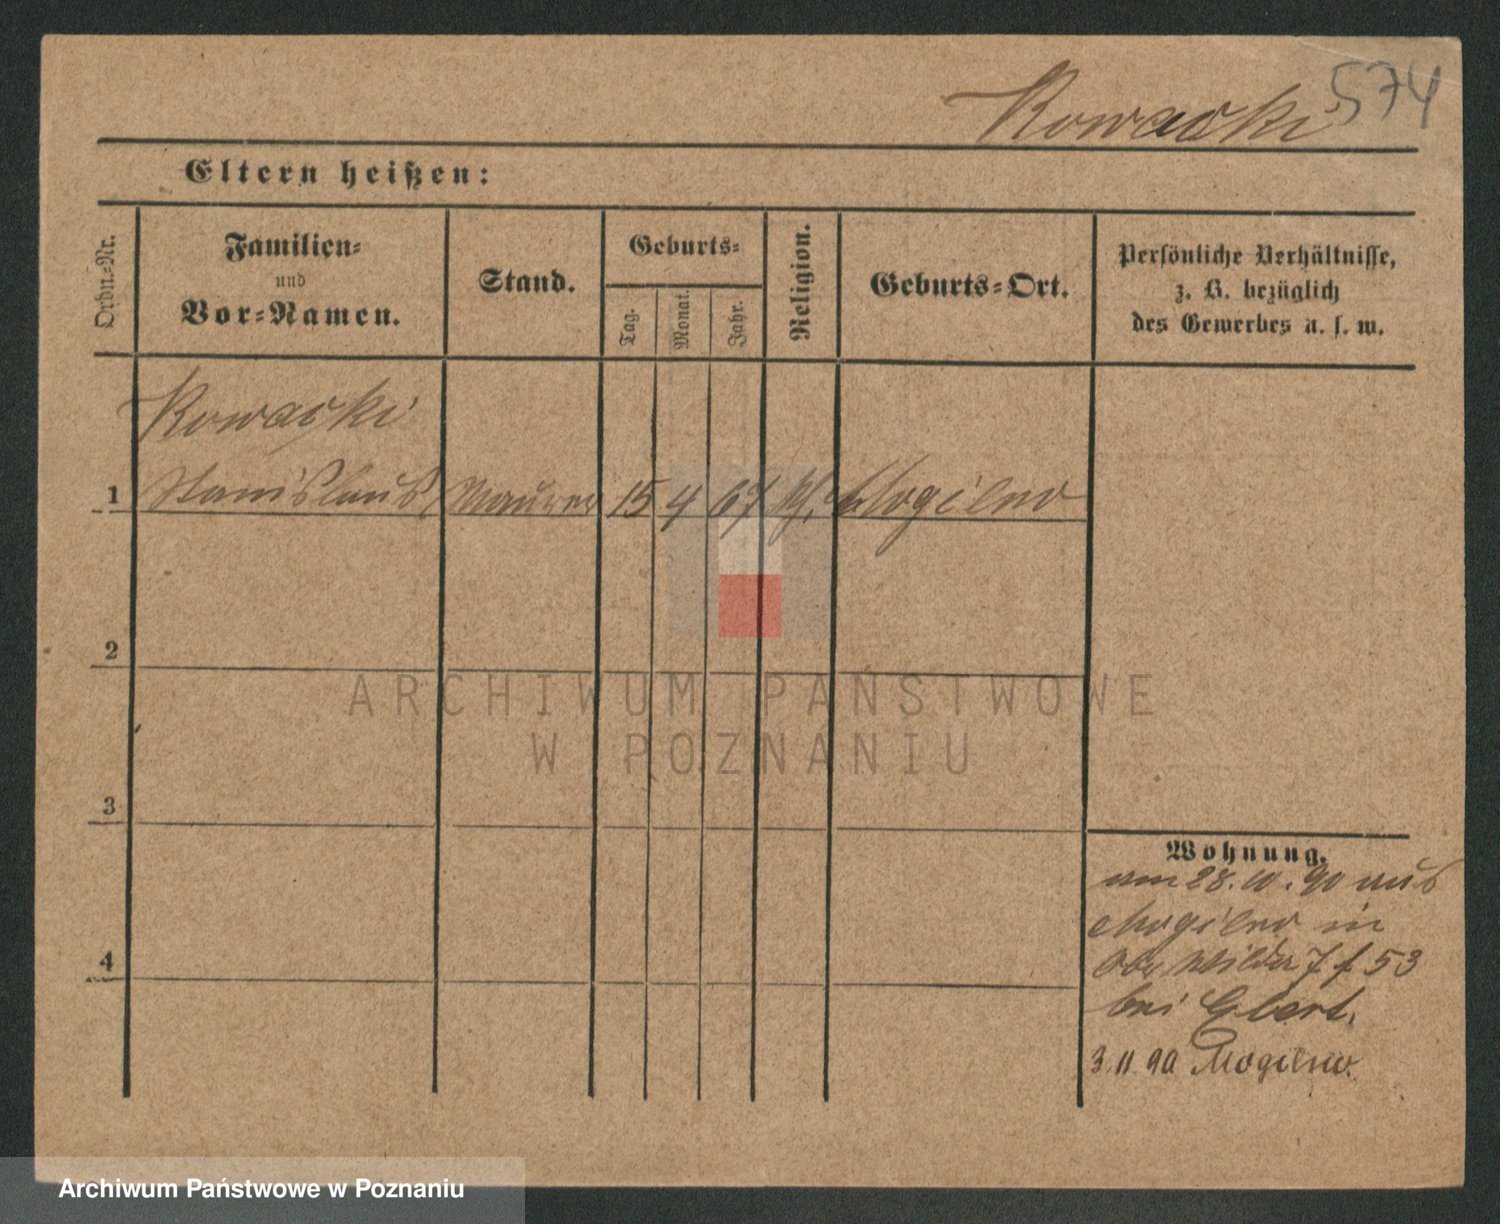 574
Kowacki
Eltern heißen:
Ordn.-Nr.
Familien-
und
Vor-Namen.
Stand.
Geburts-
Tag.
Monat.
Jahr.
Religion.
Geburts-Ort.
Persönliche Verhältnisse,
z. B. bezüglich
des Gewerbes u. s. w.
Kowacki
1 Stanislaus Maurer 15 4 67 Mogilno
2
3
4
Wohnung.
am 28.10.90 aus
Mogilno in
Wilda 53
bei
3.11.90 Mogilno.
ARCHIWUM PAŃSTWOWE
W POZNANIU
Archiwum Państwowe w Poznaniu